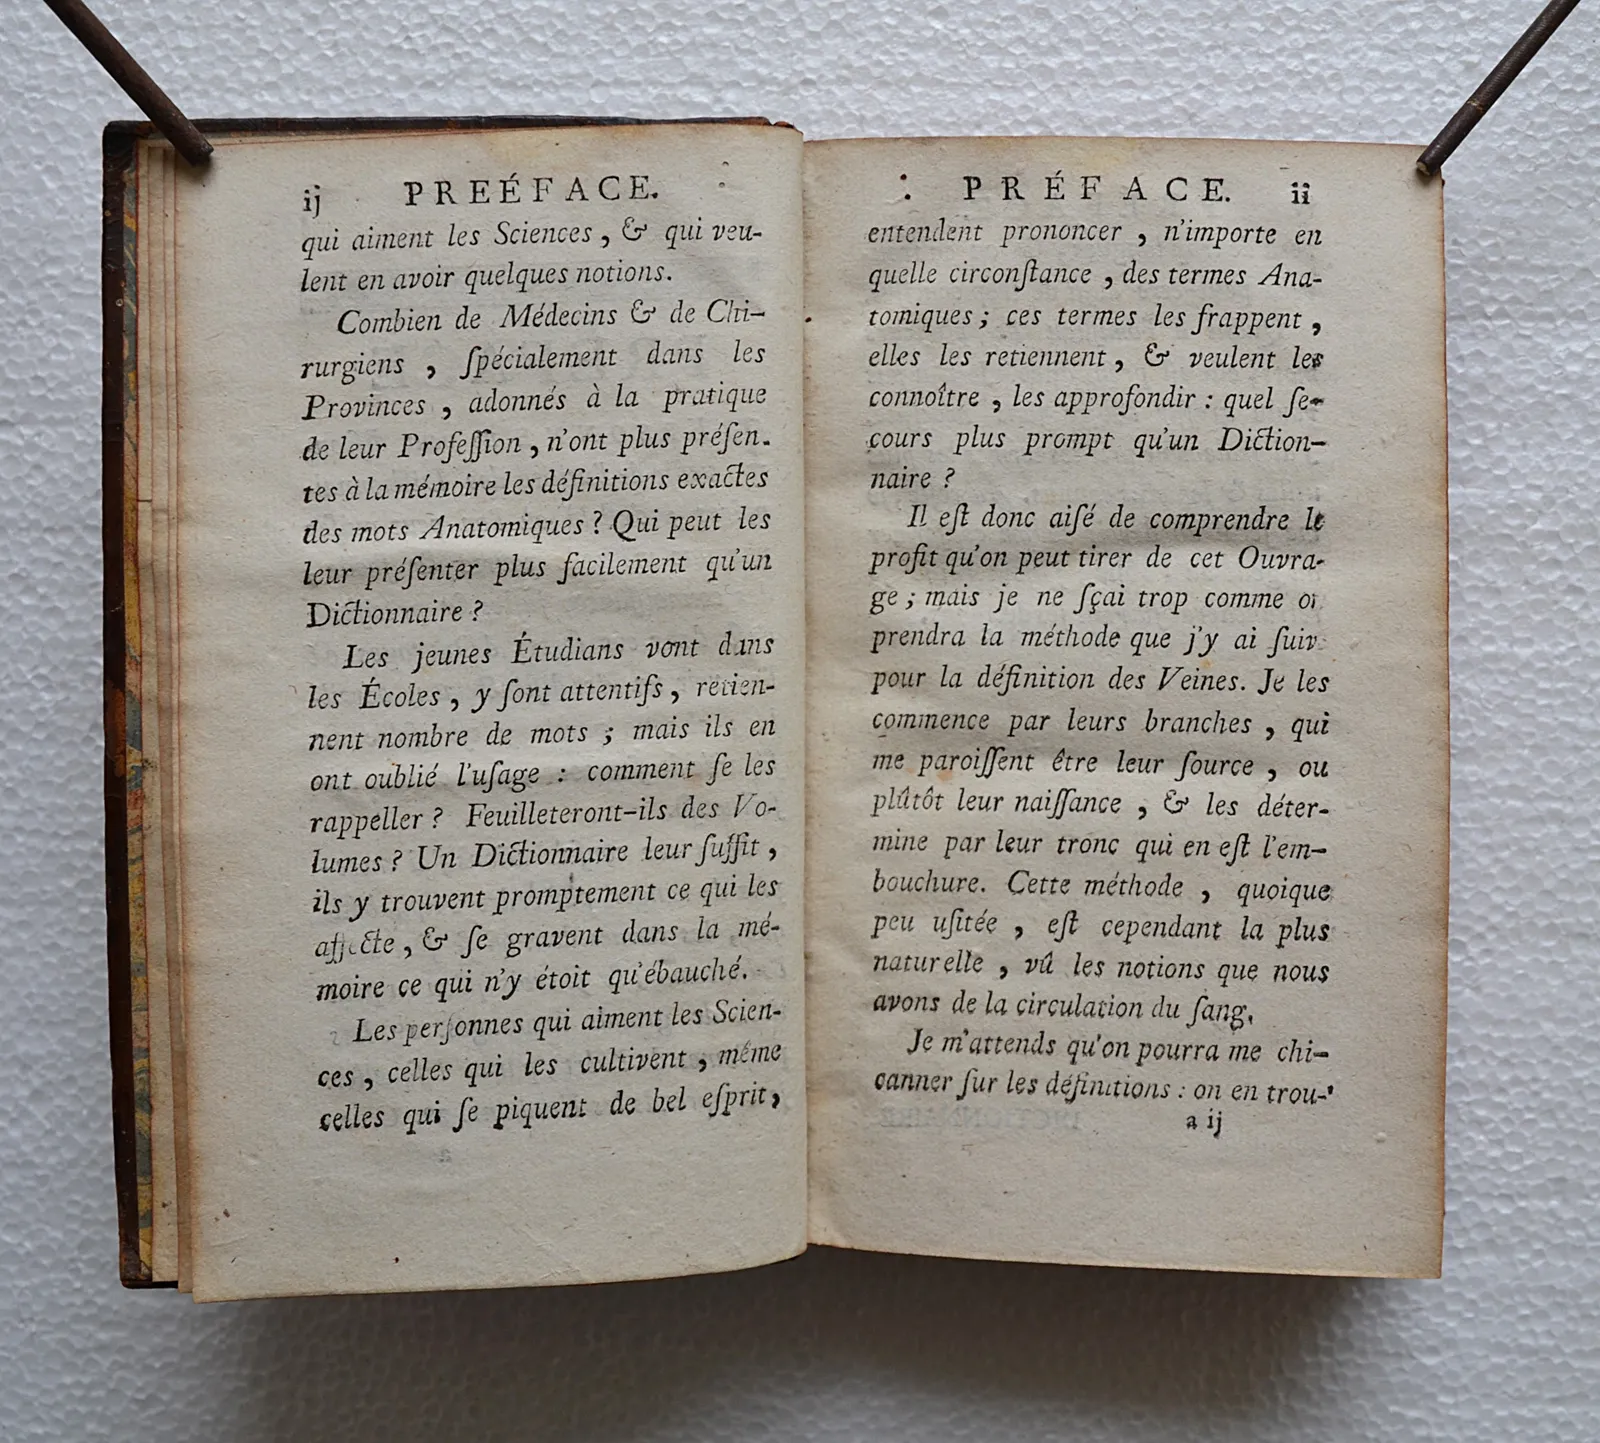 ij PREÉFACE.
qui aiment les Sciences, & qui veu-
lent en avoir quelques notions.
Combien de Médecins & de Chi-
rurgiens, ſpécialement dans les
Provinces, adonnés à la pratique
de leur Profeſſion, n'ont plus préſen-
tes à la mémoire les définitions exactes
des mots Anatomiques? Qui peut les
leur préſenter plus facilement qu'un
Dictionnaire?
Les jeunes Étudians vont dans
les Écoles, y ſont attentifs, retien-
nent nombre de mots; mais ils en
ont oublié l'uſage: comment ſe les
rappeller? Feuilleteront-ils des Vo-
lumes? Un Dictionnaire leur ſuffit,
ils y trouvent promptement ce qui les
affecte, & ſe gravent dans la mé-
moire ce qui n'y étoit qu'ébauché.
Les perſonnes qui aiment les Scien-
ces, celles qui les cultivent, même
celles qui ſe piquent de bel eſprit,
PRÉFACE. ii
entendent prononcer, n'importe en
quelle circonſtance, des termes Ana-
tomiques; ces termes les frappent,
elles les retiennent, & veulent les
connoître, les approfondir: quel ſe-
cours plus prompt qu'un Diction-
naire?
Il eſt donc aiſé de comprendre le
profit qu'on peut tirer de cet Ouvra-
ge; mais je ne ſçai trop comme
prendra la méthode que j'y ai ſuiv
pour la définition des Veines. Je les
commence par leurs branches, qui
me paroiſſent être leur ſource, ou
plûtôt leur naiſſance, & les déter-
mine par leur tronc qui en eſt l'em-
bouchure. Cette méthode, quoique
peu uſitée, eſt cependant la plus
naturelle, vû les notions que nous
avons de la circulation du ſang.
Je m'attends qu'on pourra me chi-
canner ſur les définitions: on en trou-
a ij